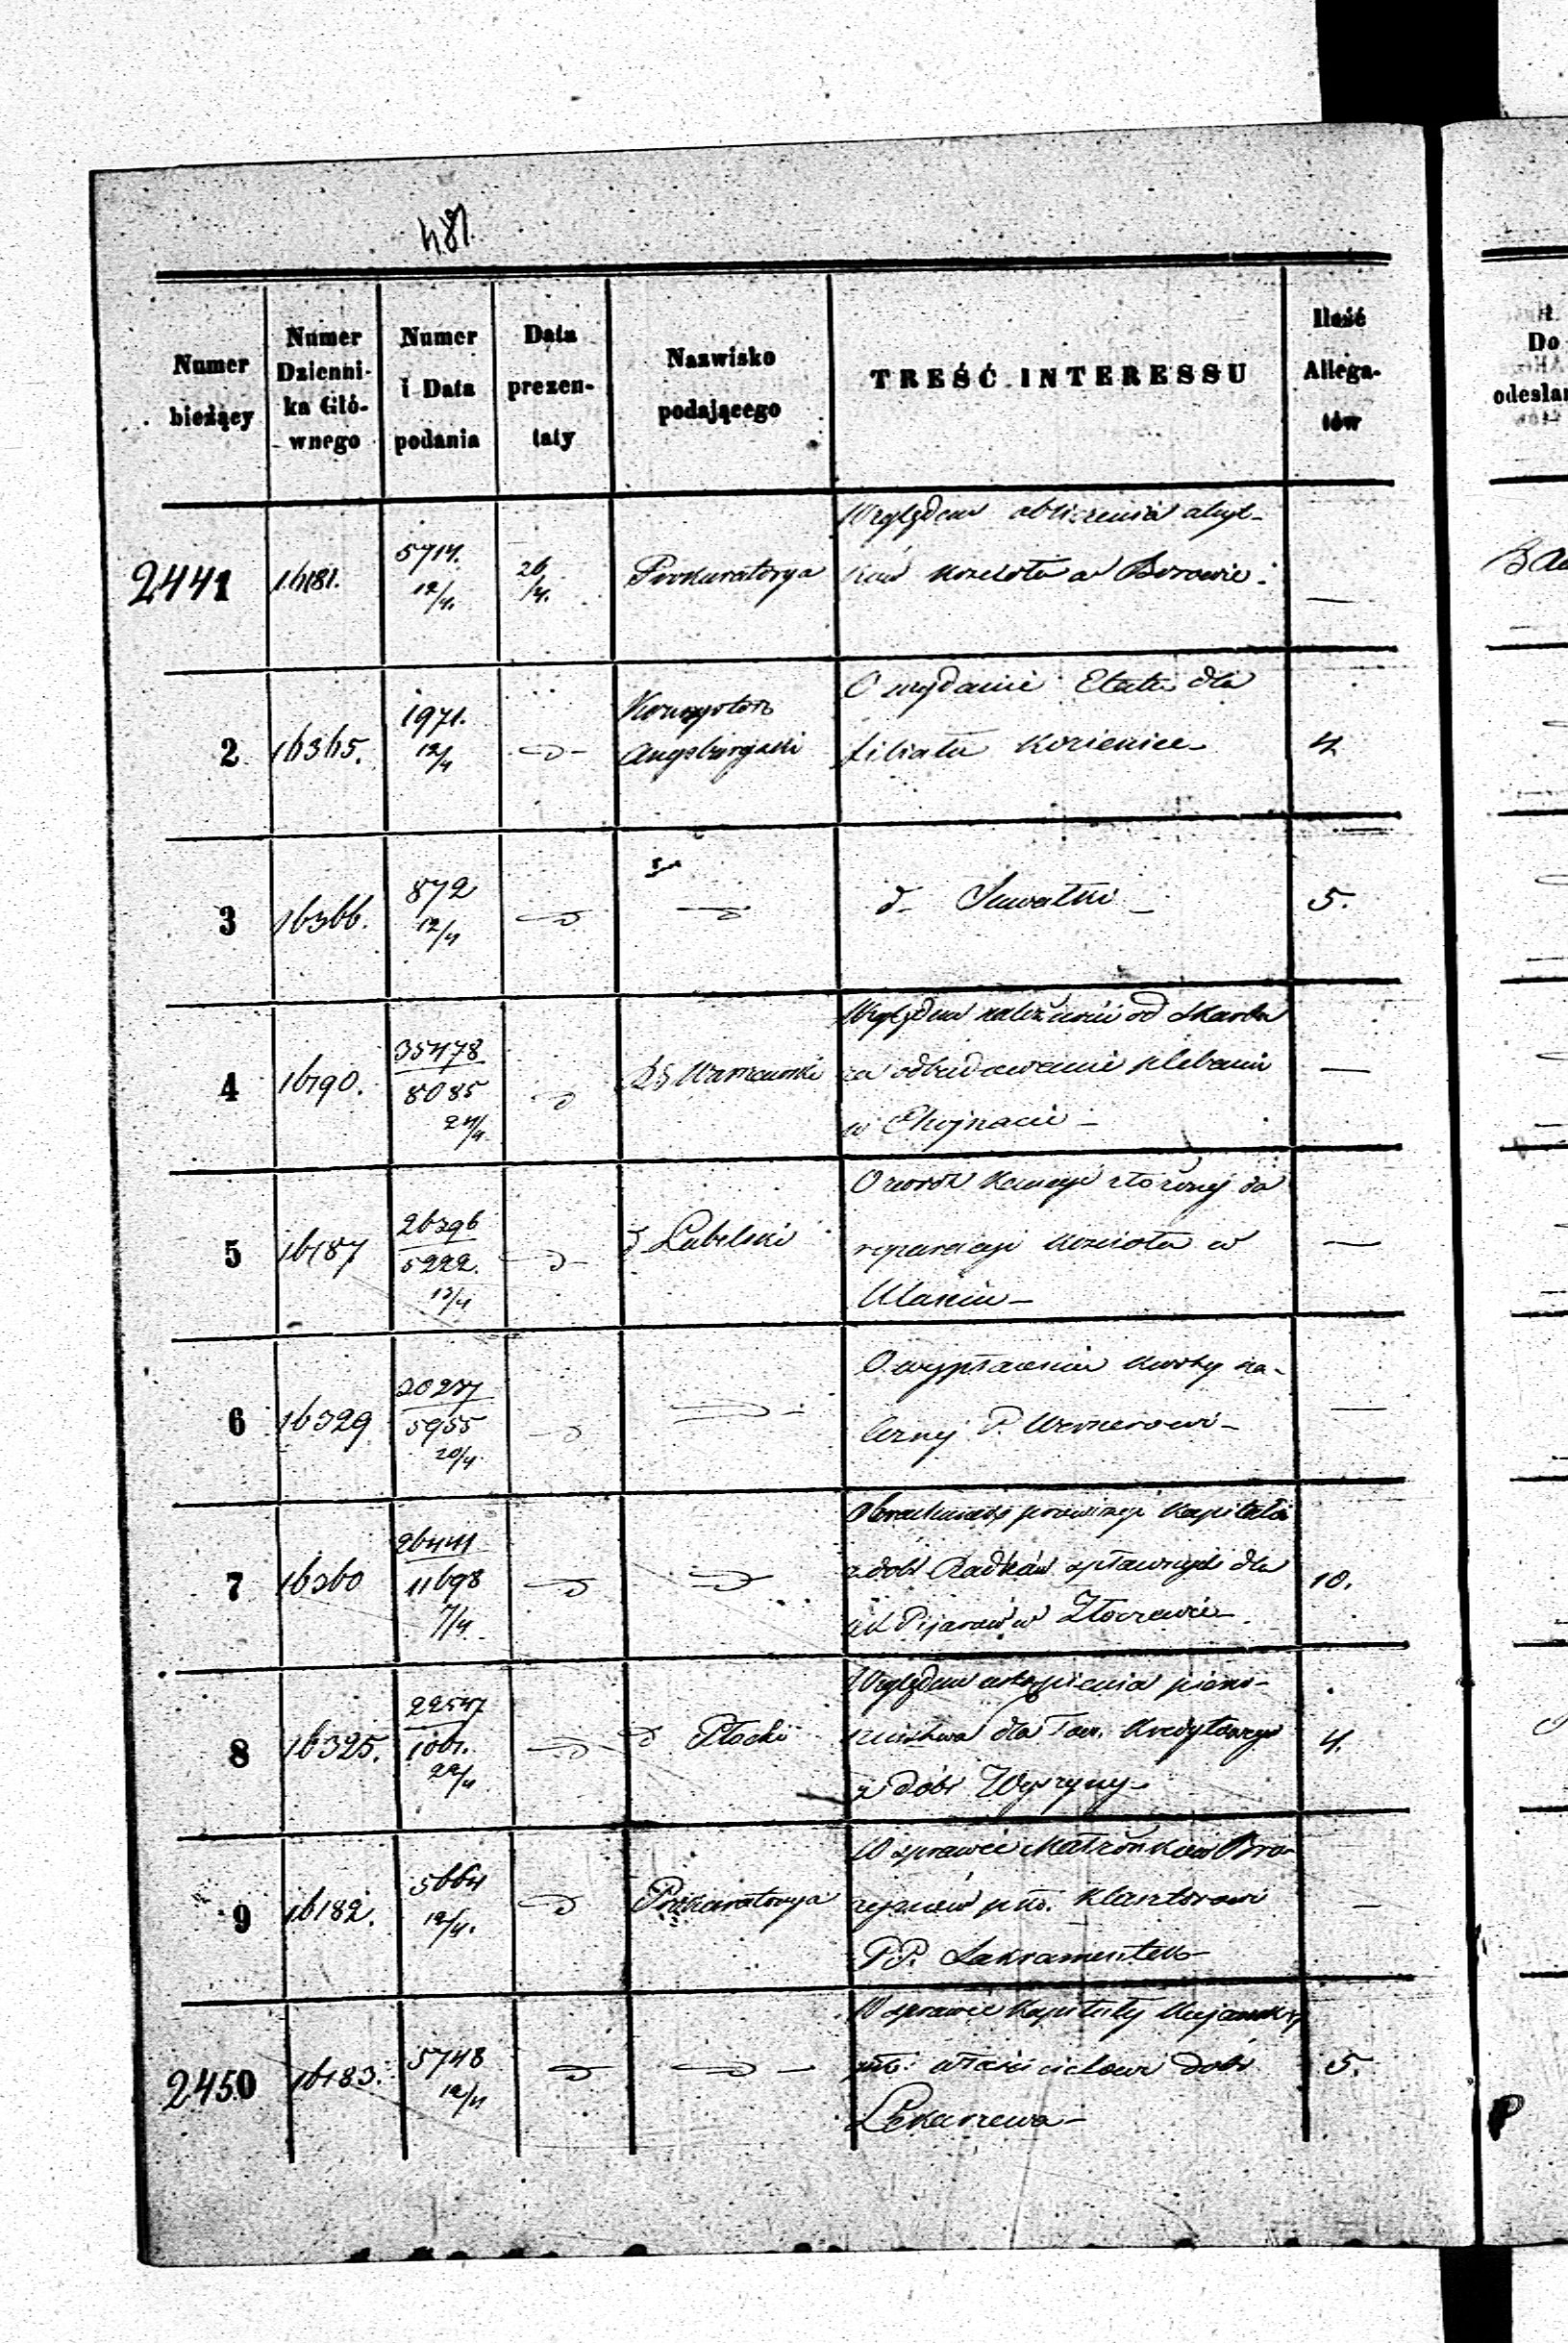 481.
Numer bieżący
Numer Dzienni- ka Głó- wnego
Numer i Data podania
Data prezen- taty
Nazwisko podającego
TREŚĆ INTERESSU
Ilość Allega- tów
Do
odesłan
2441 16181. 5714. 12/4. 26/4. Prokuratorya
Względem obliczenia
kościoła w Borowie.
—
2 16365. 1971. 12/4 -d- Konsystorz
Augsburgski
O wydanie Etatu dla
filiału Kozienice
4.
3 16366. 872 12/4 -d- -d-
d- Suwałki -
5.
4 16190. 35478/8085 24/4 -d- Warszawski
Względem należności od Skarbu
za odbudowanie plebanii
w Chojnacie -
—
5 16187 26396/5222. 13/4 -d- Lubelski
O zwrot kaucyi złożonej do
reparacyi kościoła w
—
6 16329 20237/5955 20/4 -d- -d-
O wypłacenie kwoty na-
leżnej P. Wernerowi -
—
7 16360 26441/11698 7/4 -d- -d-
prowizyi kapitału
z dóbr Radków spławnych dla
XX Pijarów w
10.
8 16325. 22547/1061. 22/4 -d- d Płocki
Względem ustąpienia pierw-
szeństwa dla Tow. Kredytowego
z dóbr
4.
9 16182. 5664 12/4. -d- Prokuratorya
W sprawie Małżonków
pko. Klasztorowi
PP. Sakramentek
—
2450 16183. 5748 12/4 -d- -d-
W sprawie Kapituły Kujawskiej
pko. właścicielowi dóbr
Lekarzewa -
5.